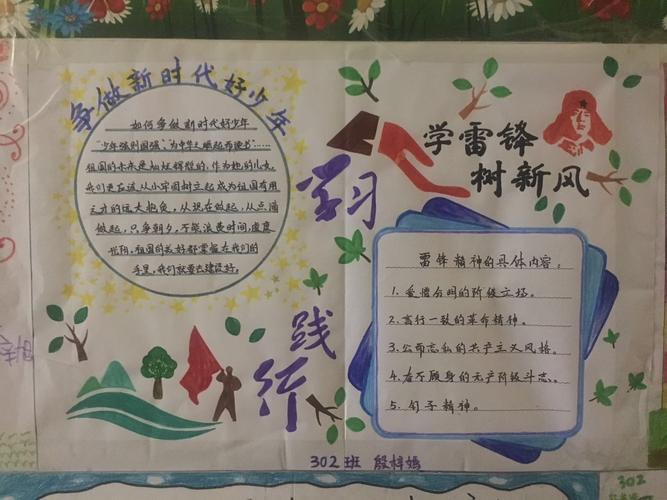 争做新时代好少年
如何争做新时代好少年
“少年强则国强,为中华之崛起而读书”……
祖国的未来是灿烂辉煌的,作为她的儿女,
我们更应该从小牢固树立起成为祖国有用
之才的远大抱负,从现在做起,从点滴
做起,只争朝夕,不能浪费时间,虚度
光阴,祖国的美好都掌握在我们的
手里,我们就要去建设好。
学习
践行
学雷锋
树新风
雷锋精神的具体内容。
1.爱憎分明的阶级立场。
2.言行一致的革命精神。
3.公而忘私的共产主义风格。
4.奋不顾身的无产阶级斗志。
5.钉子精神。
302班 殷梓嫣
302